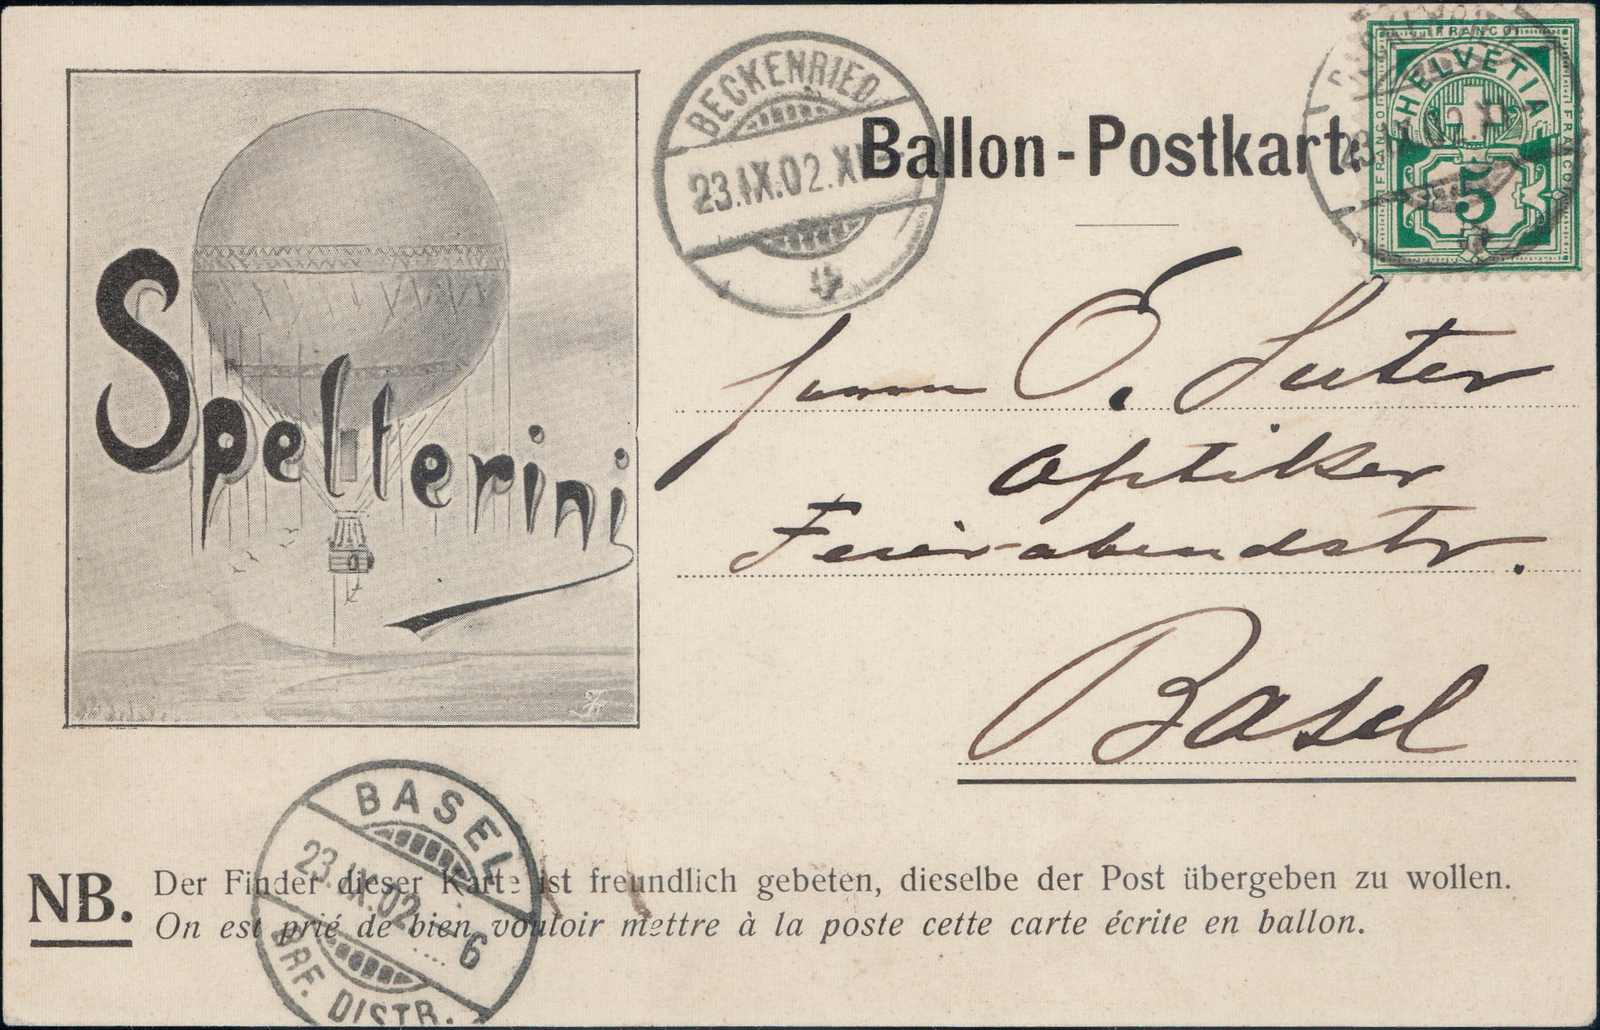 Spelterini
BECKENRIED
23.IX.02.XI
Ballon-Postkarte
FRANCO
HELVETIA
FRANCO
FRANCO
5
Herrn E. Suter
Optiker
Feierabendstr.
Basel
BASEL
23.IX.02 6
BRF. DISTR.
NB. Der Finder dieser Karte ist freundlich gebeten, dieselbe der Post übergeben zu wollen.
On est prié de bien vouloir mettre à la poste cette carte écrite en ballon.